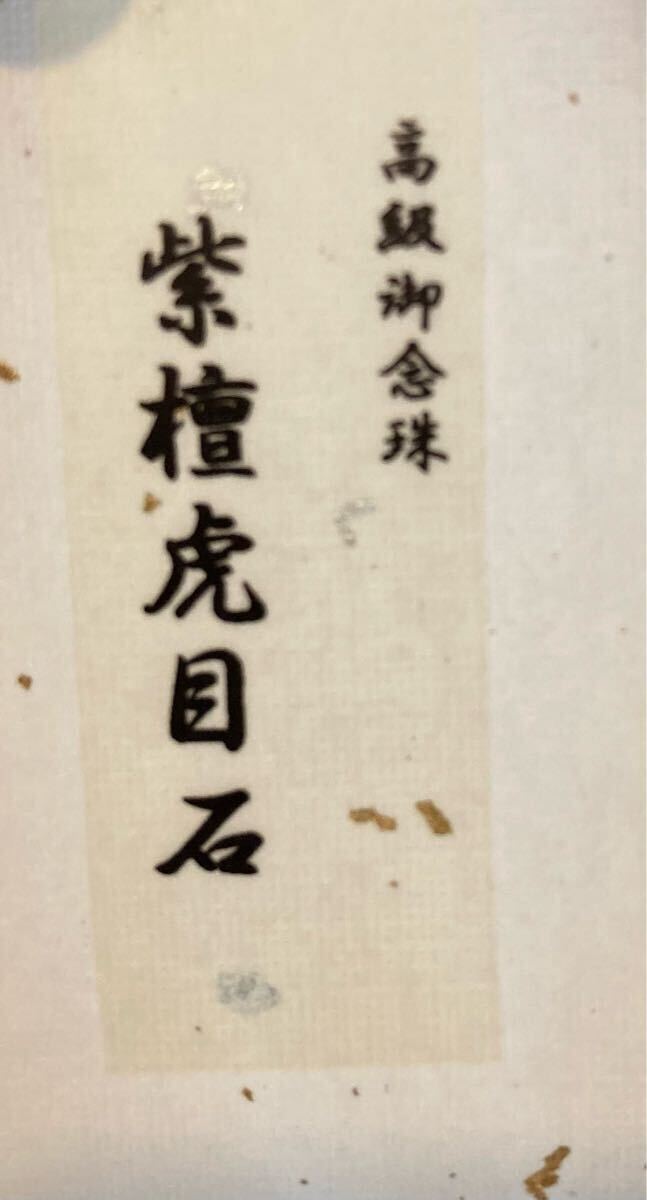 高級御念珠
紫檀虎目石